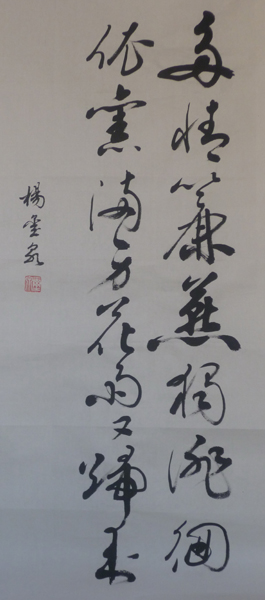 多情簾燕獨徘徊
依舊滿身花雨又歸來
楊